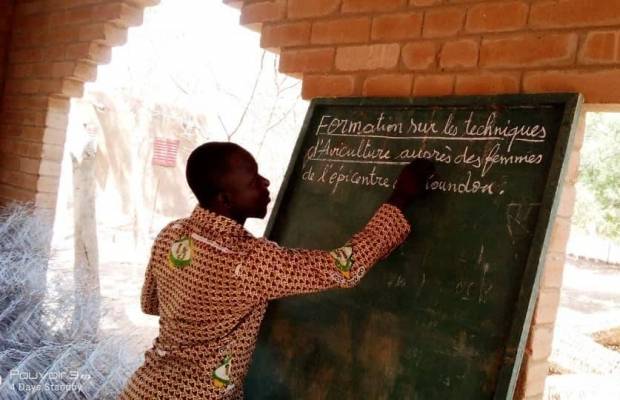 Formation sur les techniques
d'Aviculture auprès des femmes
de l'épicentre
Pouvoir 3
4 Days Standby